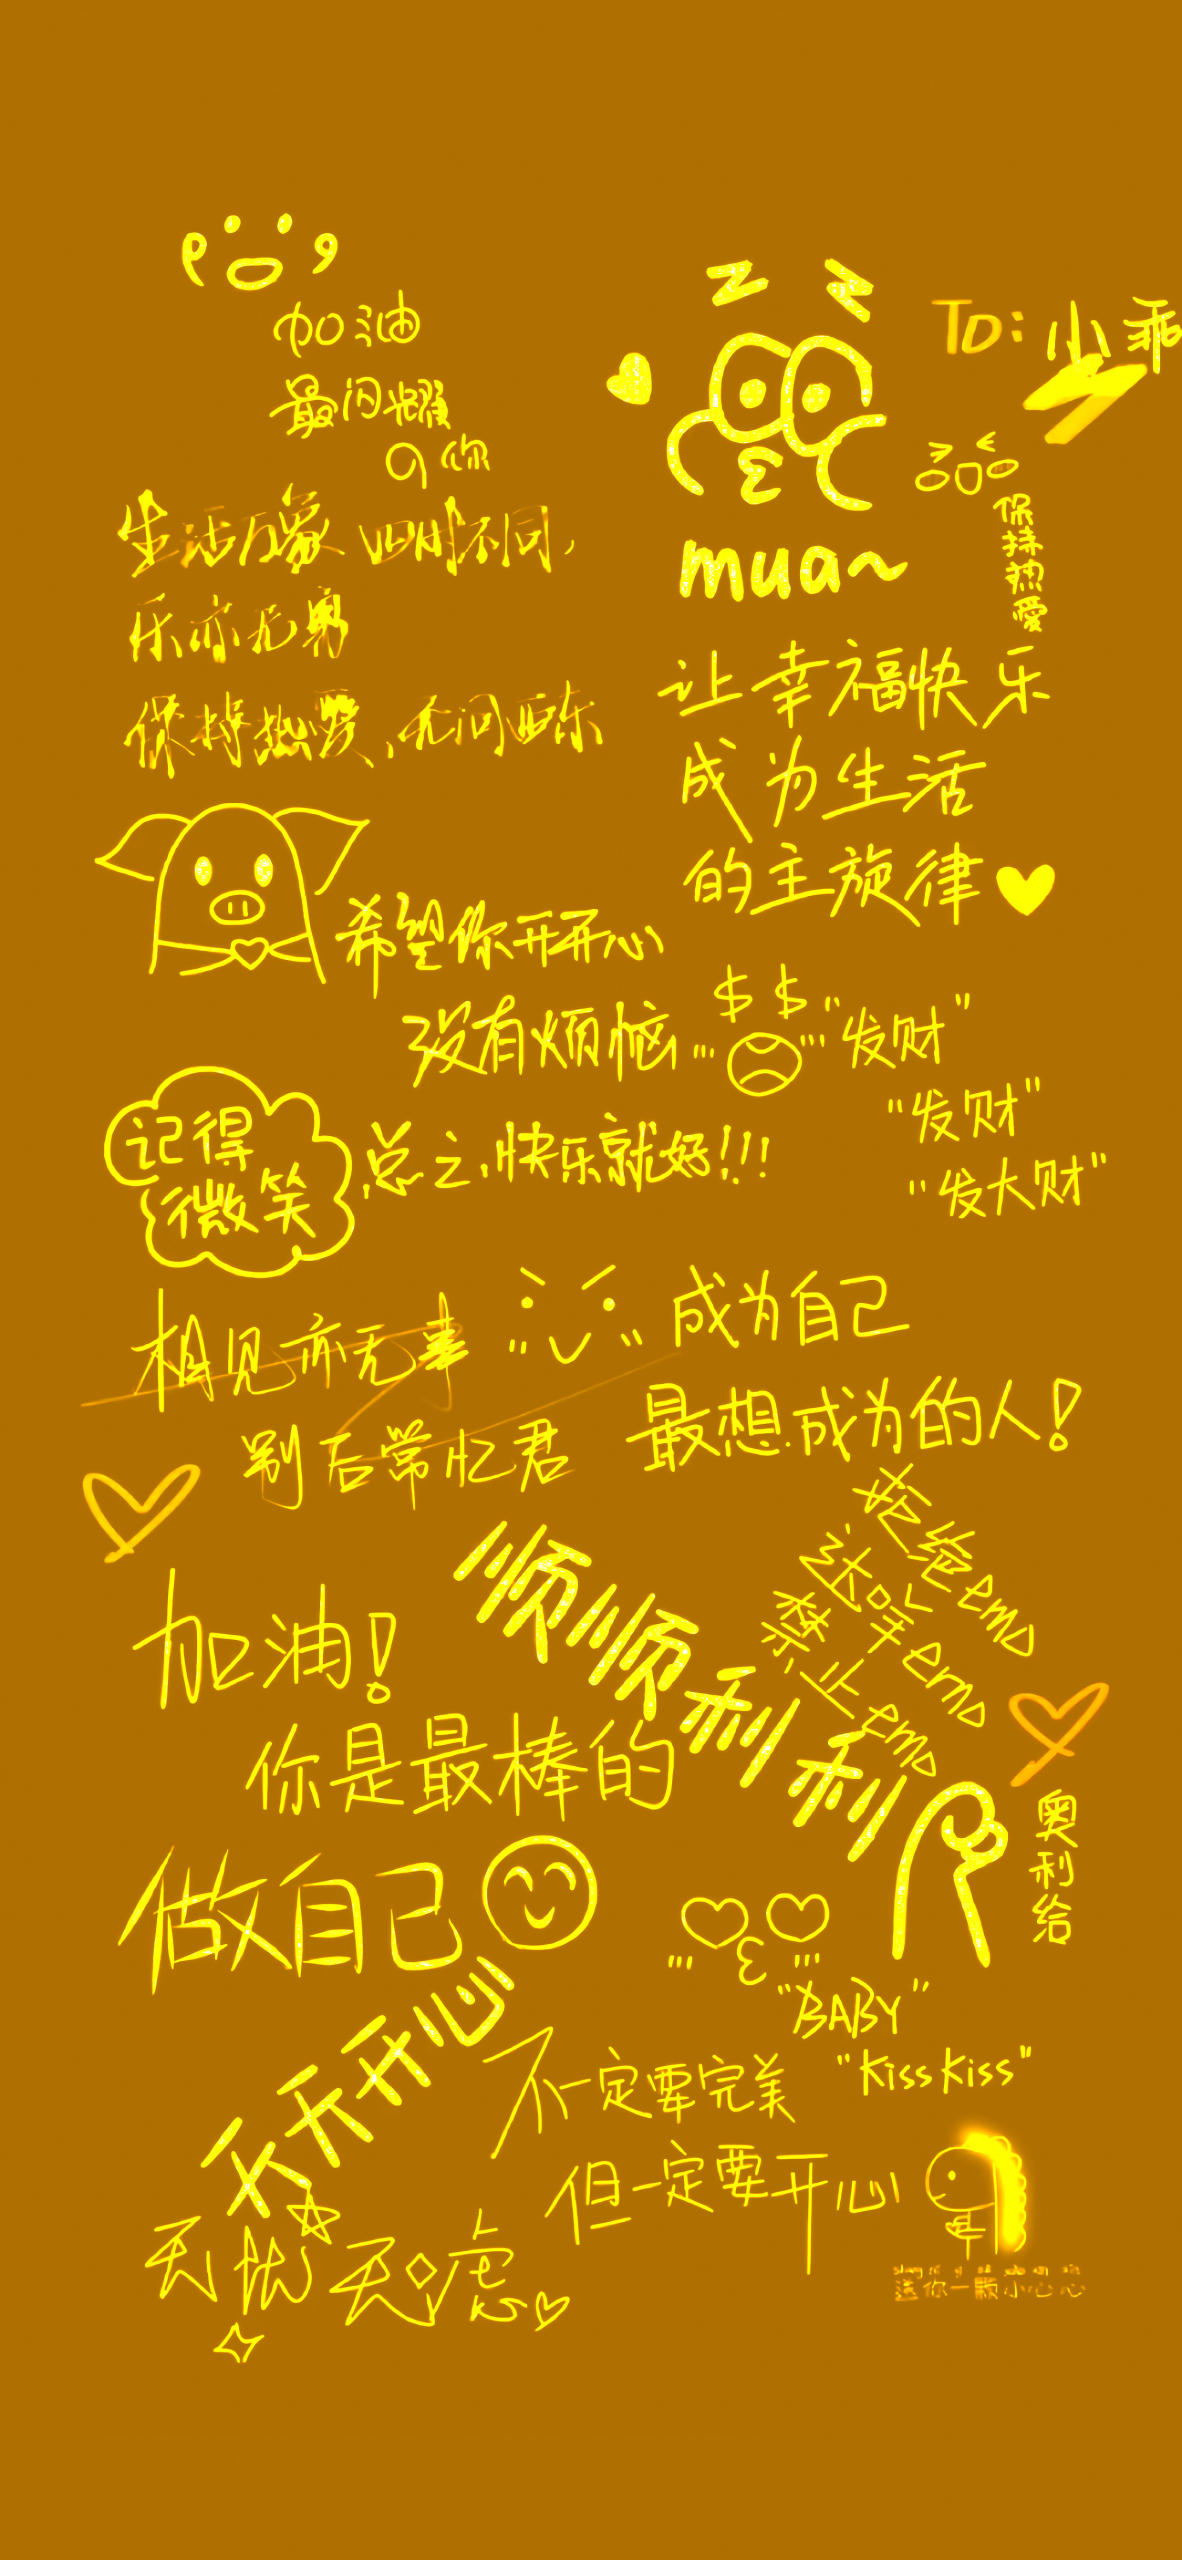 加油
最闪耀
の你
To: 小乖
mua~
保持热爱
生活万象 四时不同,
乐亦无穷
保持热爱、无问西东
让幸福快乐
成为生活
的主旋律
希望你开开心
没有烦恼
$ $
"发财"
"发财"
"发大财"
记得
微笑
总之,快乐就好!!!
相见亦无事
别后常忆君
成为自己
最想成为的人!
拒绝emo
达咩emo
禁止emo
加油!
顺顺利利
你是最棒的
奥利给
做自己
天天开心
"BABY"
"kiss kiss"
不一定要完美
但一定要开心
无忧无虑
送你一颗小心心